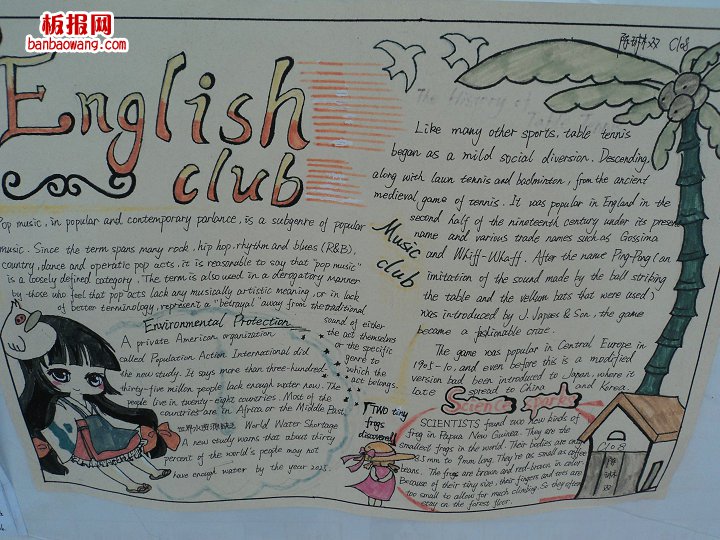 板报网
banbaowang.com
C108
English
club
The History of
Table Tennis
Like many other sports, table tennis
began as a mild social diversion. Descending,
along with lawn tennis and badminton, from the ancient
medieval game of tennis. It was popular in England in the
second half of the nineteenth century under its present
name and various trade names such as Gossima
and Whiff-Whaff. After the name Ping-Pong (an
imitation of the sound made by the ball striking
the table and the vellum bats that were used)
was introduced by J. Japues & Son, the game
became a fashionable craze.
The game was popular in Central Europe in
1905-10, and even before this is a modified
version had been introduced to Japan, where it
late spread to China and Korea.
Music
club
Pop music, in popular and contemporary parlance, is a subgenre of popular
music. Since the term spans many rock, hip hop, rhythm and blues (R&B),
country, dance and operatic pop acts, it is reasonable to say that "pop music"
is a loosely defined category. The term is also used in a derogatory manner
by those who feel that pop acts lack any musically artistic meaning, or in lack
of better terminology, represent a "betrayal away from the traditional
sound of either
the act themselves
or the specific
genre to
which the
act belongs.
Environmental Protection
A private American organization
called Population Action International did
the new study. It says more than three-hundred
thirty-five millon people lack enough water now. The
people live in twenty-eight countries. Most of the
countries are in Africa or the Middle East.
世界水资源缺乏 World Water Shortage
A new study warns that about thirty
percent of the world's people may not
have enough water by the year 2025.
TWO tiny
frogs
discovered
Science Sparks
SCIENTISTS found two new kinds of
frog in Papua New Guinea. They are the
smallest frogs in the world. Their bodies are only
8.5 mm to 9 mm long. They're as small as coffee
beans. The frogs are brown and red-brown in color.
Because of their tiny size, their fingers and toes are
too small to allow for much climbing. So they often
stay on the forest floor.
C108